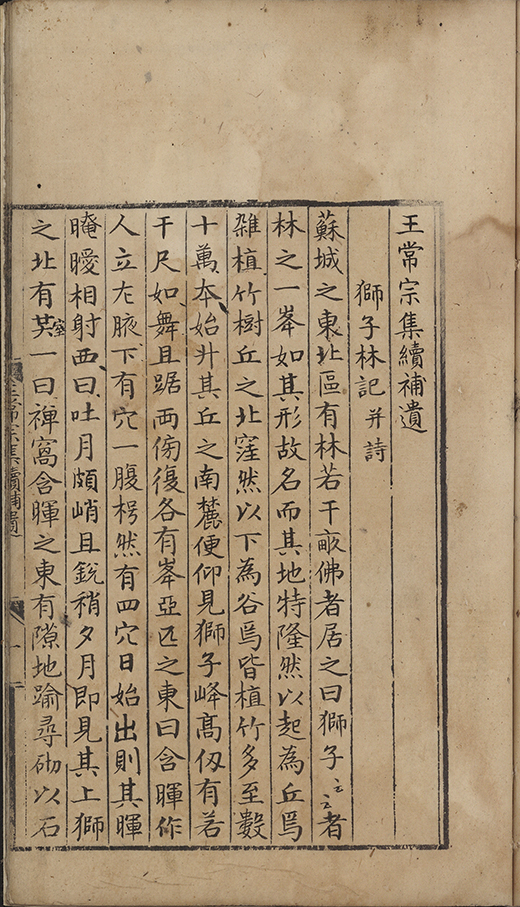 王常宗集續補遺
獅子林記并詩
蘇城之東北區有林若干畝佛者居之曰獅子〻〻者
林之一峯如其形故名而其地特隆然以起為丘焉
雜植竹樹丘之北窪然以下為谷焉皆植竹多至數
十萬本始升其丘之南麓便仰見獅子峰高仭有若
干尺如舞且踞兩傍復各有峯亞匹之東曰含暉作
人立左腋下有穴一腹枵然有四穴日始出則其暉
晻曖相射西曰吐月頗峭且銳稍夕月即見其上獅
之北有室一曰禪窩含暉之東有隙地踰尋砌以石
王常宗集續補遺
一